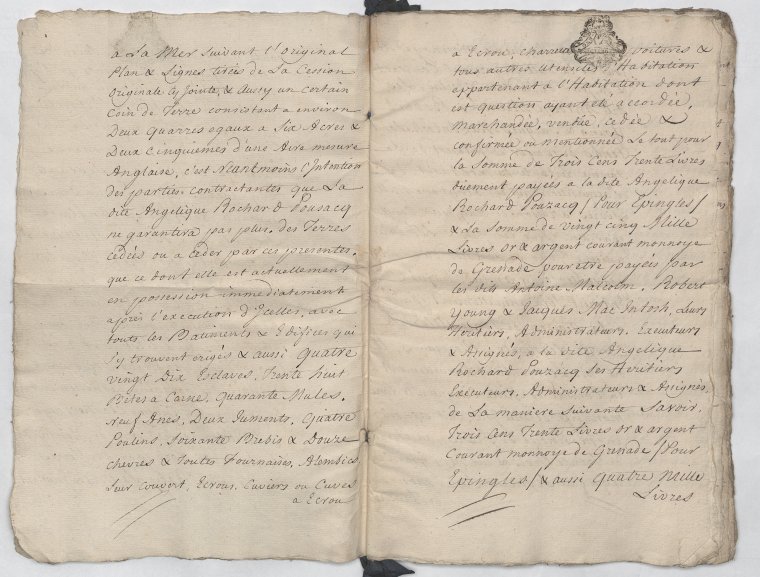 à La Mer suivant l'original
Plan & Lignes tirées de La Cession
originale cy Jointe, & Aussy un certain
Coin de Terre consistant a environ
Deux Quarres egaux a Six Acres &
Deux Cinquiemes d'une Acre mesure
Anglaise, c'est Neantmoins l'Intention
des parties contractantes que La
dite Angelique Rochard Pousacq
ne garantira pas plus, des Terres
cedées ou a ceder par ces presentes,
que ce dont elle est actuellement
en possession immediatement
après l'execution d'Jcelles, avec
touts les Batiments & Edifices qui
s'y trouvent erigés & aussi Quatre
vingt Dix Esclaves, Trente huit
Bêtes a Corne, Quarante Mules,
neuf Anes, Deux Juments, Quatre
Poulins, Soixante Brebis & Douze
chevres & Toutes Fournaises, Alembics
Leur Couvert, Ecrous, Cuviers ou Cuves
a Ecrou
à Ecrou, voitures &
tous autres utensiles Habitation
appartenant à l'Habitation dont
est question ayant eté accordée,
Marchandée, vendue, cedée &
confirmée ou mentionnée Le tout pour
la Somme de Trois Cens Trente Livres
duement payées a la dite Angelique
Rochard Pouzacq / Pour Epingles /
& La Somme de vingt cinq Mille
Livres or & argent courant monnoye
de Grenade pour etre payées par
les dits Antoine Malcolm, Robert
Young & Jaques Mac Intosh, Leurs
Heritiers, Administrateurs, Executeurs
& Assignés, a la dite Angelique
Rochard Pouzacq ses Heritiers
Executeurs, Administrateurs & Assignés,
de La maniere Suivante Savoir,
Trois Cens Trente Livres or & argent
Courant monnoye de Grenade / Pour
Epingles / & aussi Quatre Mille
Livres